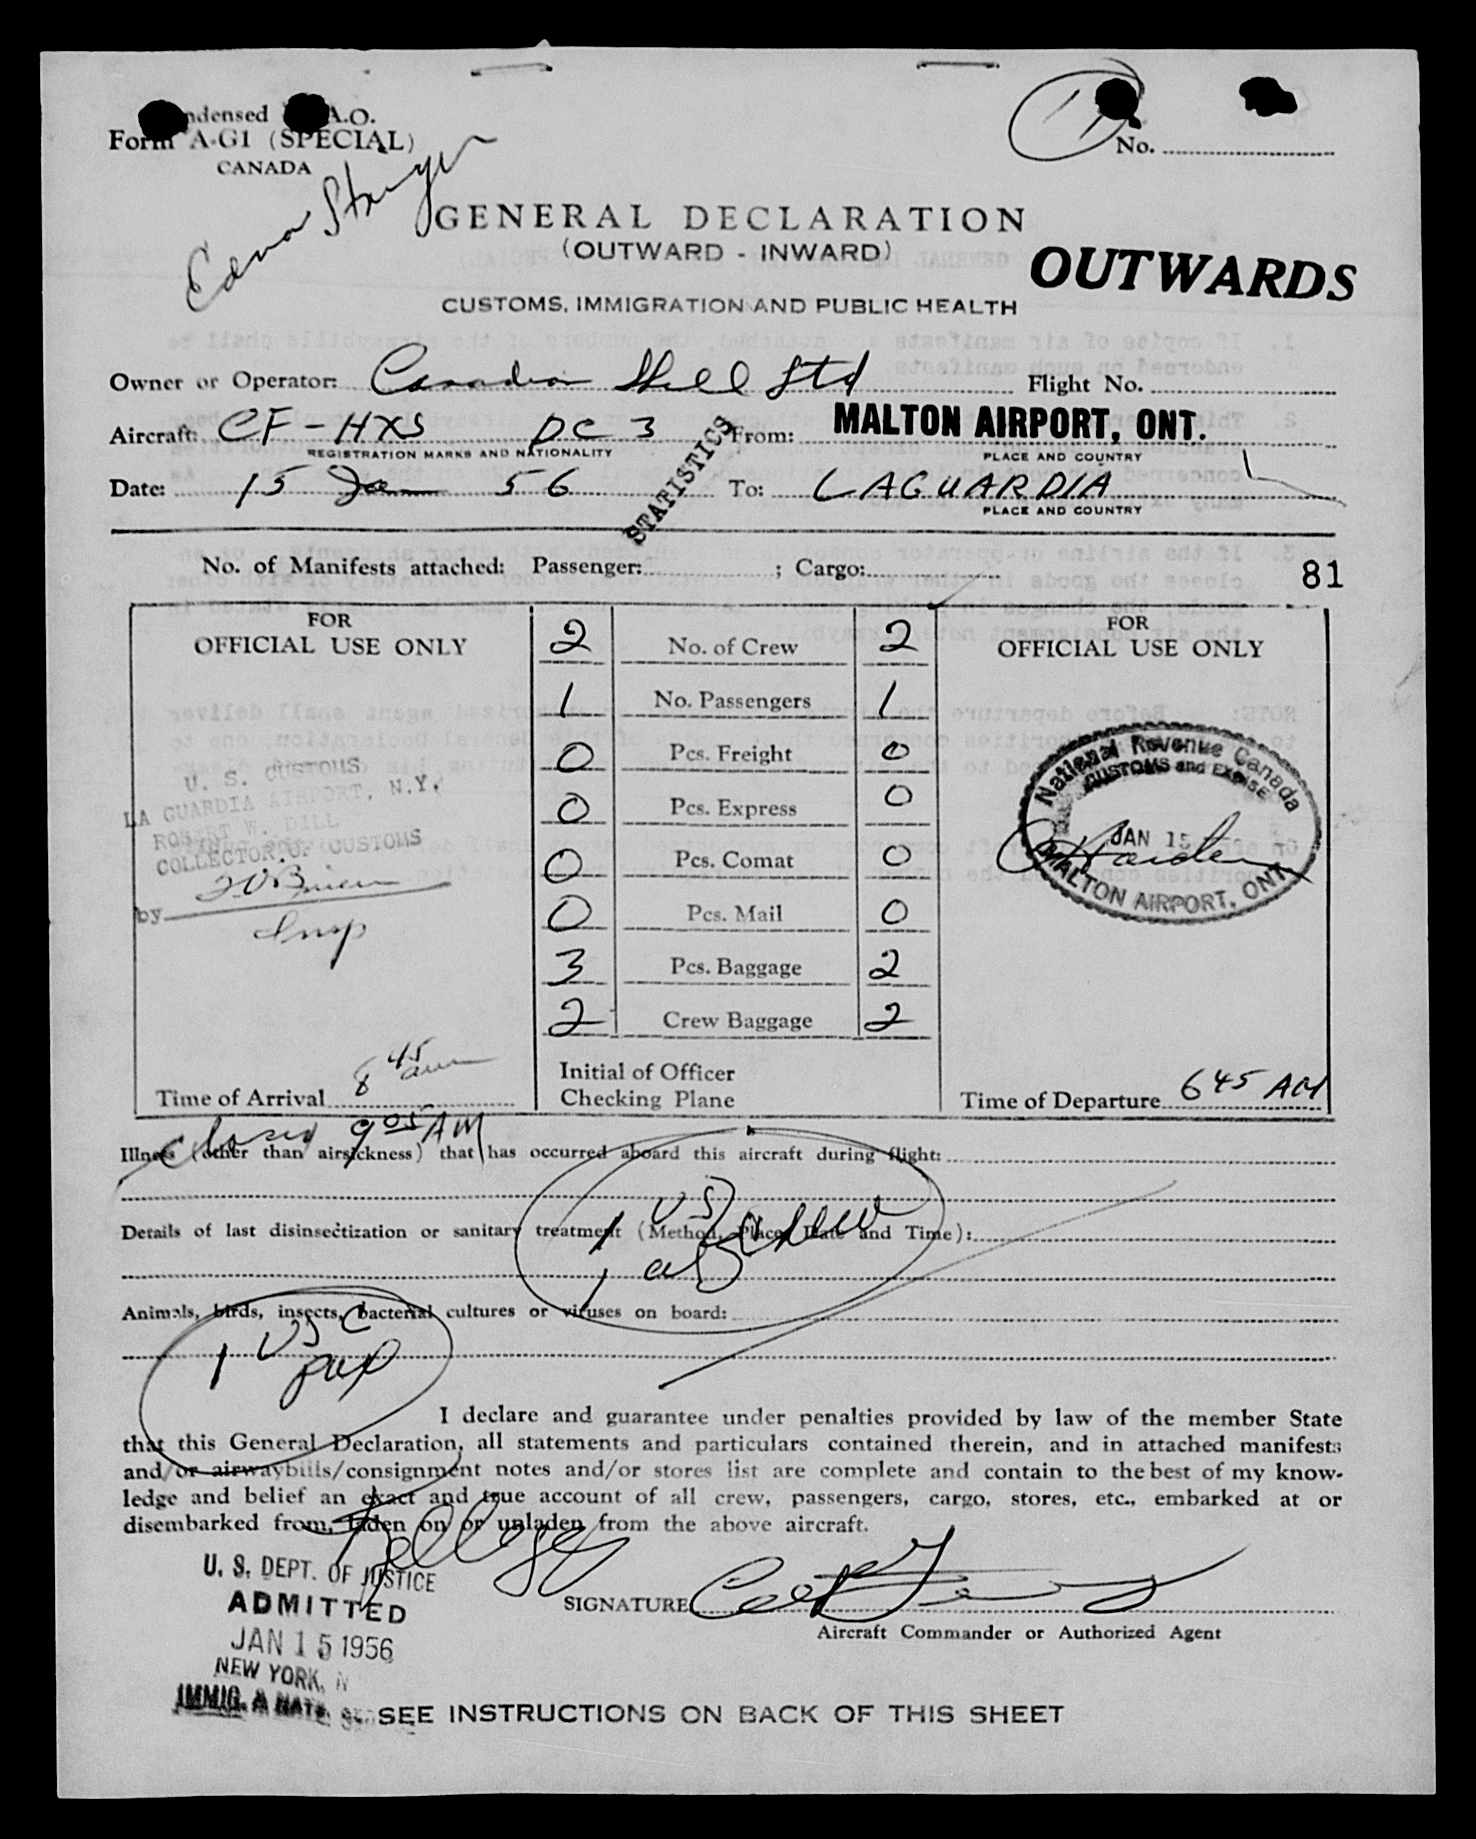 ndensed A.O.
Form A-G1 (SPECIAL)
CANADA
No.
GENERAL DECLARATION
(OUTWARD - INWARD)
OUTWARDS
CUSTOMS, IMMIGRATION AND PUBLIC HEALTH
Owner or Operator: Canadian Shell Ltd Flight No.
Aircraft: CF-HXS DC 3 From: MALTON AIRPORT, ONT.
REGISTRATION MARKS AND NATIONALITY PLACE AND COUNTRY
STATISTICS
Date: 15 Jan 56 To: LAGUARDIA
PLACE AND COUNTRY
No. of Manifests attached: Passenger: ; Cargo:
81
FOR OFFICIAL USE ONLY
2 No. of Crew 2
1 No. Passengers 1
0 Pcs. Freight 0
0 Pcs. Express 0
0 Pcs. Comat 0
0 Pcs. Mail 0
3 Pcs. Baggage 2
2 Crew Baggage 2
Initial of Officer
Checking Plane
U. S. CUSTOMS
LA GUARDIA AIRPORT, N.Y.
ROBERT W. DILL
COLLECTOR OF CUSTOMS
by
Insp
Time of Arrival 8 45 am
FOR OFFICIAL USE ONLY
National Revenue Canada
CUSTOMS and EXCISE
JAN 15
MALTON AIRPORT, ONT.
Time of Departure 6 45 AM
Closed 9 05 AM
Illness (other than airsickness) that has occurred aboard this aircraft during flight:
Details of last disinsectization or sanitary treatment (Method, Place, Date and Time):
1 US crew
1 al
Animals, birds, insects, bacterial cultures or viruses on board:
1 USC
pax
I declare and guarantee under penalties provided by law of the member State
that this General Declaration, all statements and particulars contained therein, and in attached manifests
and/or airwaybills/consignment notes and/or stores list are complete and contain to the best of my know-
ledge and belief an exact and true account of all crew, passengers, cargo, stores, etc., embarked at or
disembarked from, laden on or unladen from the above aircraft.
U. S. DEPT. OF JUSTICE
ADMITTED
JAN 15 1956
NEW YORK, N
IMMIG. & NATZ
SIGNATURE
Aircraft Commander or Authorized Agent
SEE INSTRUCTIONS ON BACK OF THIS SHEET